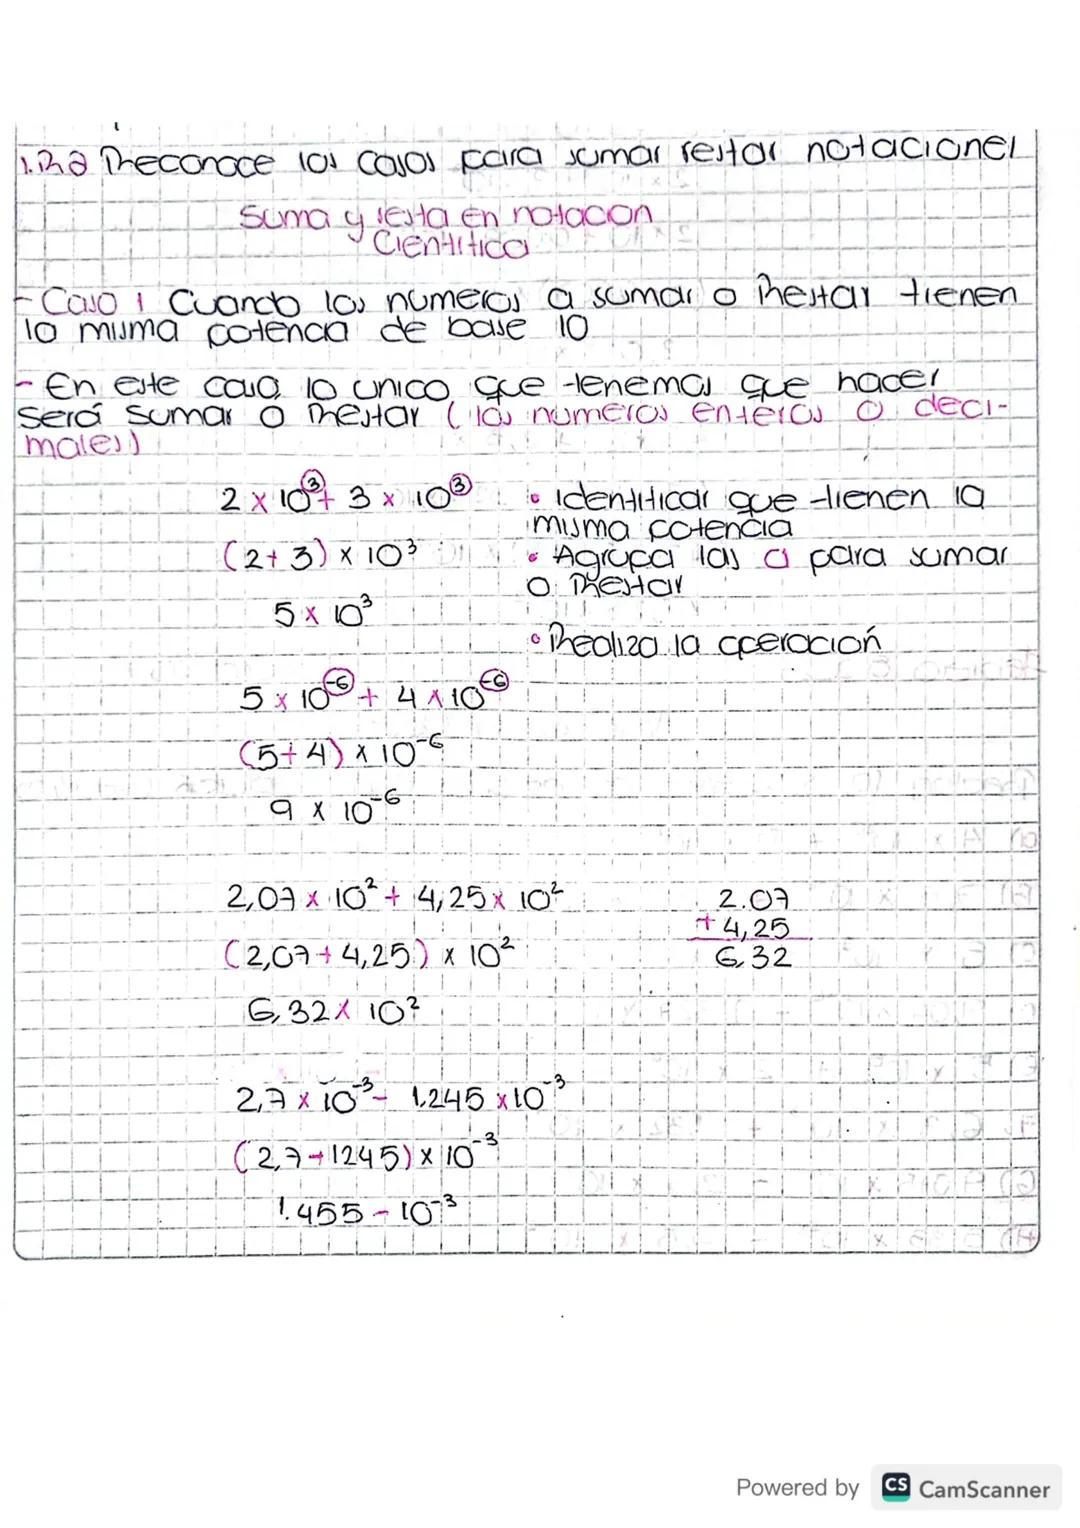 1.R.a Reconoce los casos para sumar restar notaciones
Suma y resta en notacion
Cientifica
- Caso 1 Cuando los numeros a sumar o Restar tienen
la misma potencia de base 10
- En este caso, lo unico que tenemos que hacer
será sumar o Restar (los numeros enteros o deci-
males)
2 x 10³ + 3 x 10³
• identificar que tienen la
misma potencia
(2+3) x 10³
• Agrupa las a para sumar
o Restar
5 x 10³
• Realiza la operación
5 x 10⁻⁶ + 4 x 10⁻⁶
(5+4) x 10⁻⁶
9 x 10⁻⁶
2,07 x 10² + 4,25 x 10²
2.07
+ 4,25
(2,07+4,25) x 10²
6,32
6,32 x 10²
2,7 x 10⁻³ - 1.245 x 10⁻³
(2,7-1245) x 10⁻³
1.455 - 10⁻³
Powered by CS CamScanner